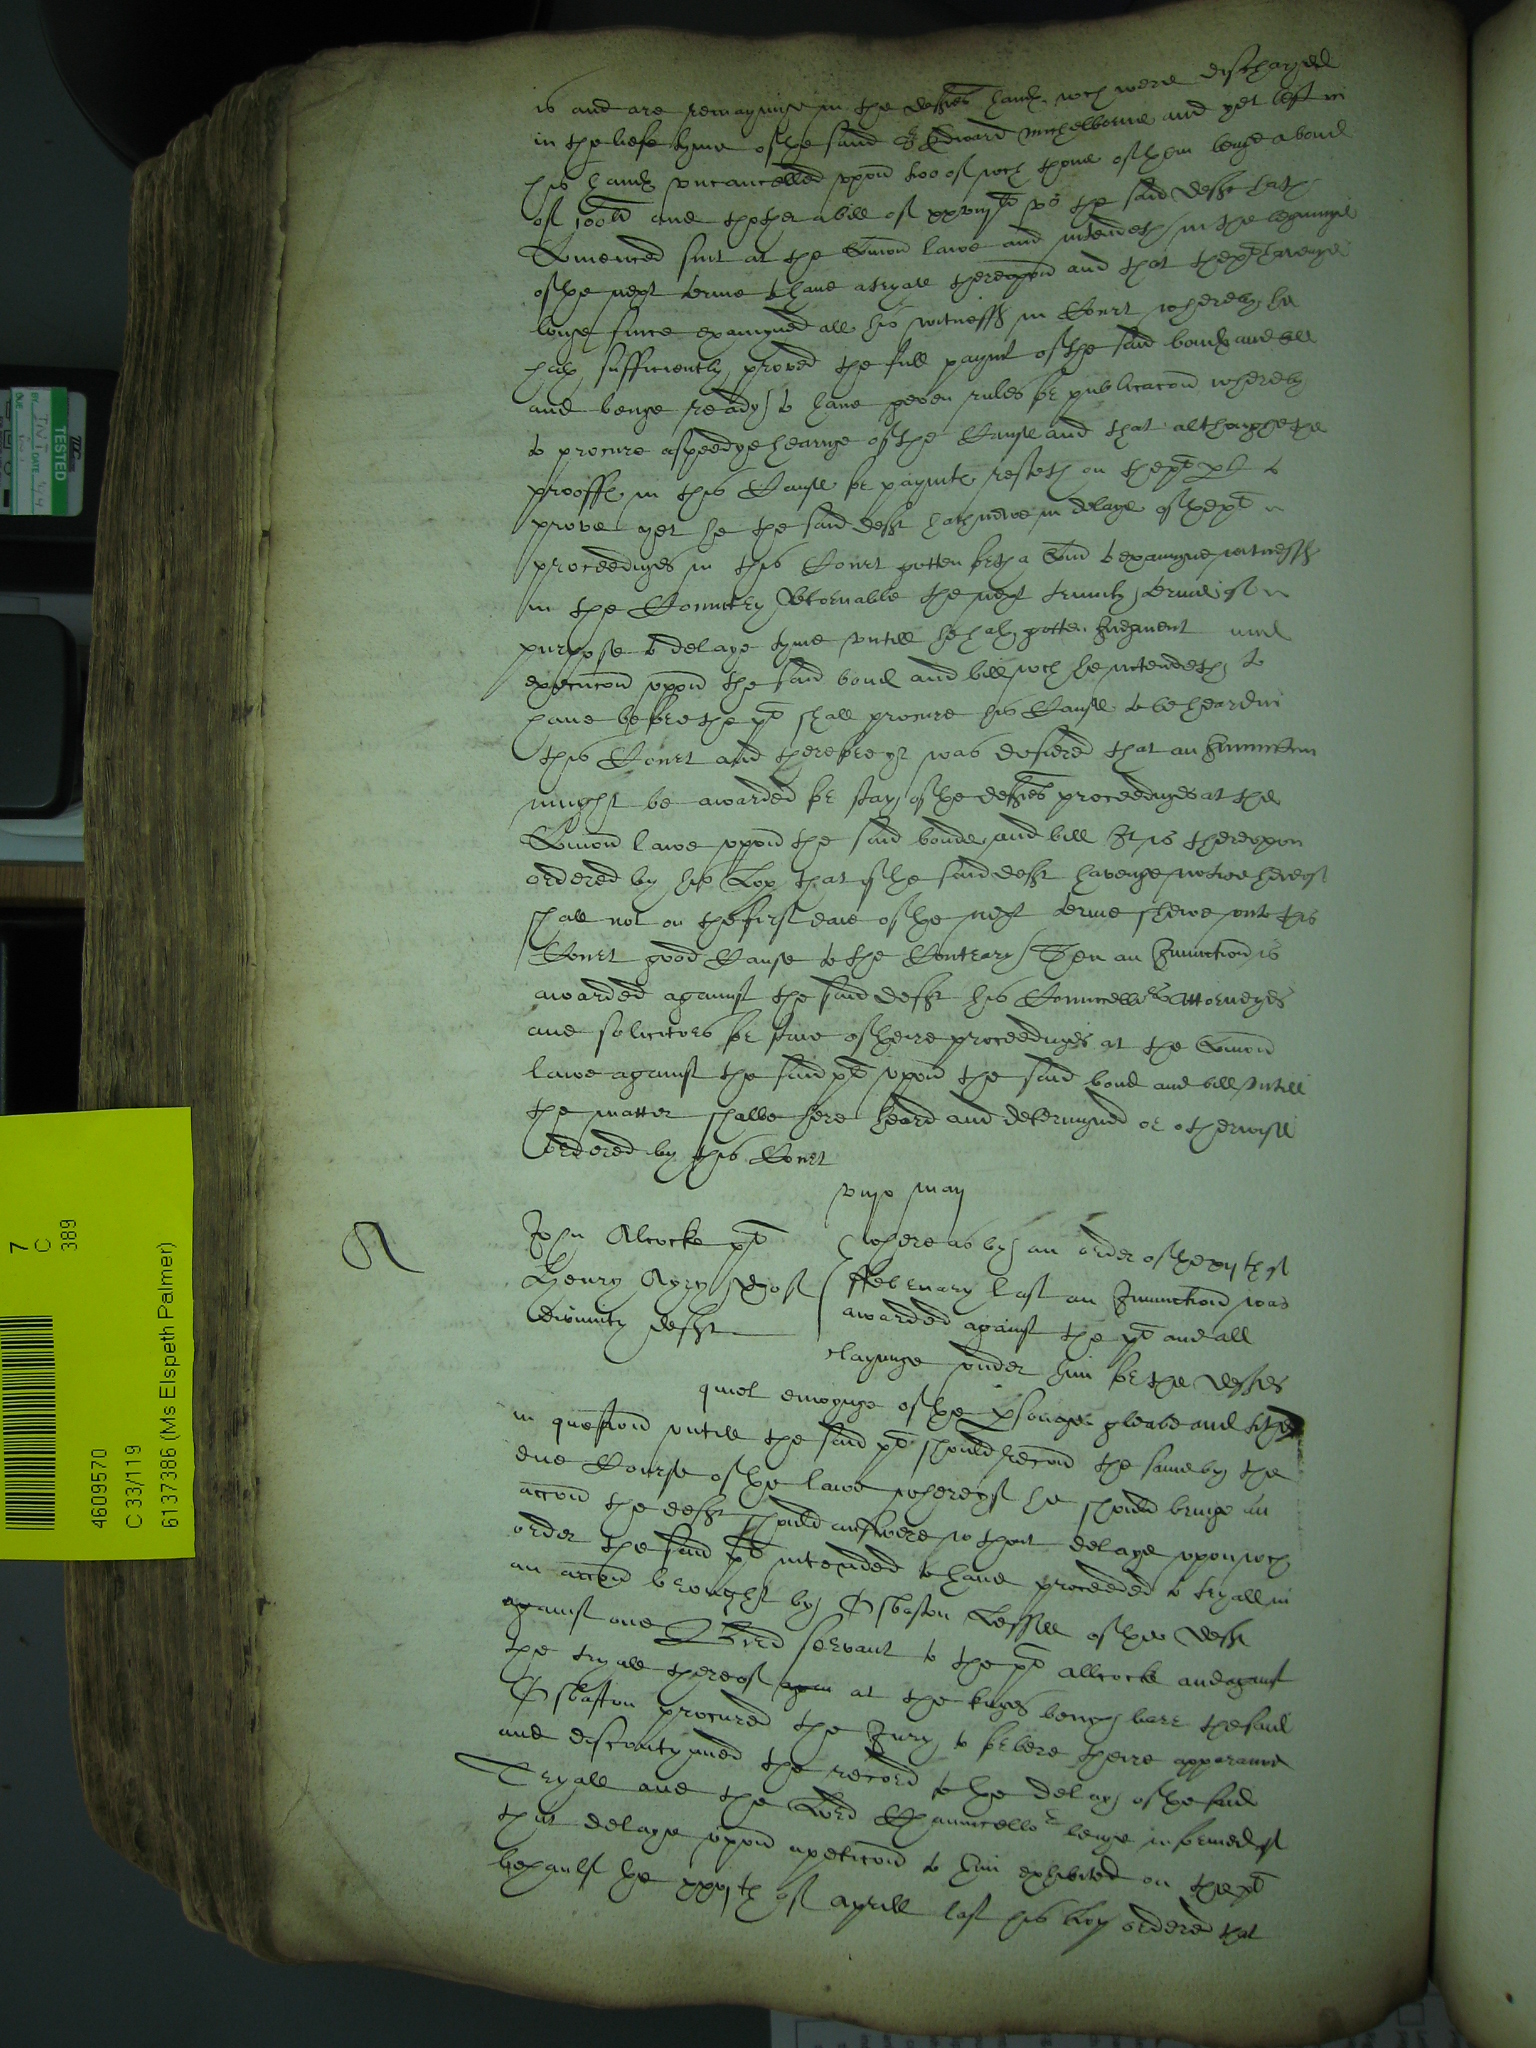 is and are remayninge in the deftes hands wch were discharged
in the liefe tyme of the said Sr Edward Michelborne and yet left in
his hands uncancelled upon two of wch thone of them beinge a bond
of 100li and thother a bill of xxviijli vs the said deft hath
Comenced suit at the Comon lawe and intendeth in the beginninge
of the next terme to have a tryall thereupon and that the plt havenge
longe since examyned all his witnesses in Court whereby he
hath sufficiently proved the full paymt of the said bonds and bill
and beinge ready to have geven rules for publicacon whereby
to procure a speedye hearinge of the Cause and that althoughe the
prooffe in this Cause for paymts resteth on the plt pt to
prove yet he the said deft hath nowe in delaye of the plt
proceedinges in this Court gotten forth a Com to examyne witnesses
in the Countrey Retornable the next trinity terme of
purpose to delaye tyme untill he hath gotten Judgment and
execucon upon the said bond and bill wch he intendeth to
have before the plt shall procure his Cause to be heard in
this Court and therefore yt was desiered that an Iniunction
might be awarded for stay of the deftes proceedinges at the
Comon lawe upon the said bonde and bill It is thereupon
ordered by his Lop that if the said deft havenge notice hereof
shall not on the first daie of the next terme shewe unto this
Court good Cause to the Contrary Then an Iniunction is
awarded against the said deft his Councellrs Attorneyes
and solicitors for staie of theire proceedinges at the Comon
lawe against the said plt upon the said bond and bill untill
the matter shalbe here heard and determyned or otherwise
ordered by this Court
viijo May
A
John Alcocke plt
Henry Ayry Dor of
divinity deft
Whereas by an order of the xijth of
ffebruary last an Iniunction was
awarded against the plt and all
clayminge under him for the deftes
quiet enioyinge of the psonage gleabe and tithes
in question untill the said plt should recover the same by the
due Course of the lawe whereof he should bringe an
accon the deft should answere wthout delaye upon wch
order the said plt intended to have proceeded to tryall in
an accon brought by Osbaston Lessee of the deft
against one Bird servant to the plt Allcocke and against
the tryall thereof at the kinges bench barr the said
Osbaston procured the Jury to forbere theire apparance
and discontynued the record to the delay of the said
Tryall and the Lord Chauncellor beinge informed of
that delaye upon a peticon to him exhibited on the plt
behaulf the xxvjth of Aprill last his Lop ordered that
TESTED
INIT
DATE
7
C
389
4609570
C 33/119
6137386 (Ms Elspeth Palmer)